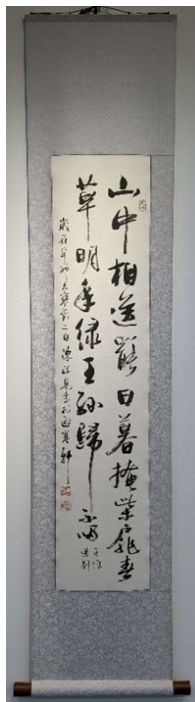 山中相送罷日暮掩柴扉春
草明年綠王孫歸不歸
王維
送別
歲在辛卯大寒前二日